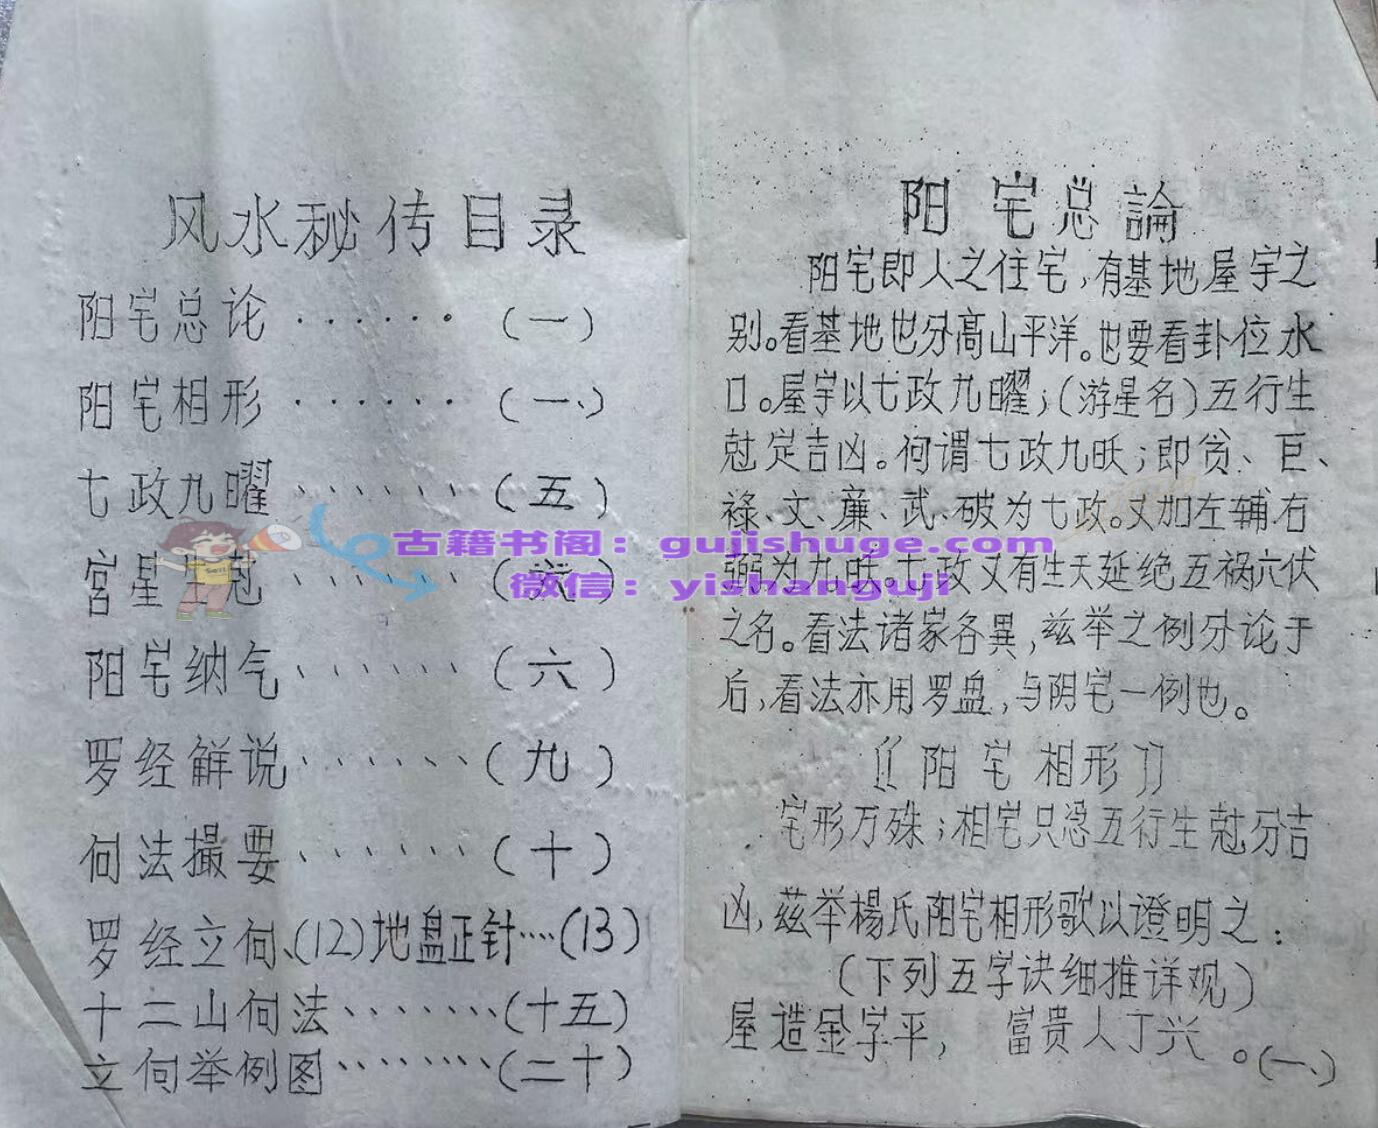 风水秘传目录
阳宅总论······(一)
阳宅相形······(一、)
七政九曜······(五)
宫星
阳宅纳气······(六)
罗经解说······(九)
向法撮要······(十)
罗经立向、(12)地盘正针····(13)
十二山向法·······(十五)
立向举例图·······(二十)
阳宅总論
阳宅即人之住宅,有基地屋宇之
别。看基地也分高山平洋。也要看卦位水
口。屋宇以七政九曜;(游星名)五行生
尅定吉凶。何谓七政九昳;即贪、巨、
禄、文、廉、武、破为七政。又加左辅右
弼为九昳。七政又有生天延绝五祸六伏
之名。看法诸家各異,兹举之例分论于
后,看法亦用罗盘,与阴宅一例也。
《阳宅相形》
宅形万殊;相宅只忌五行生尅分吉
凶,兹举楊氏阳宅相形歌以證明之:
(下列五字诀细推详观)
屋造金字平, 富贵人丁兴。(一、)
古籍书阁:gujishuge.com
微信:yishanguji